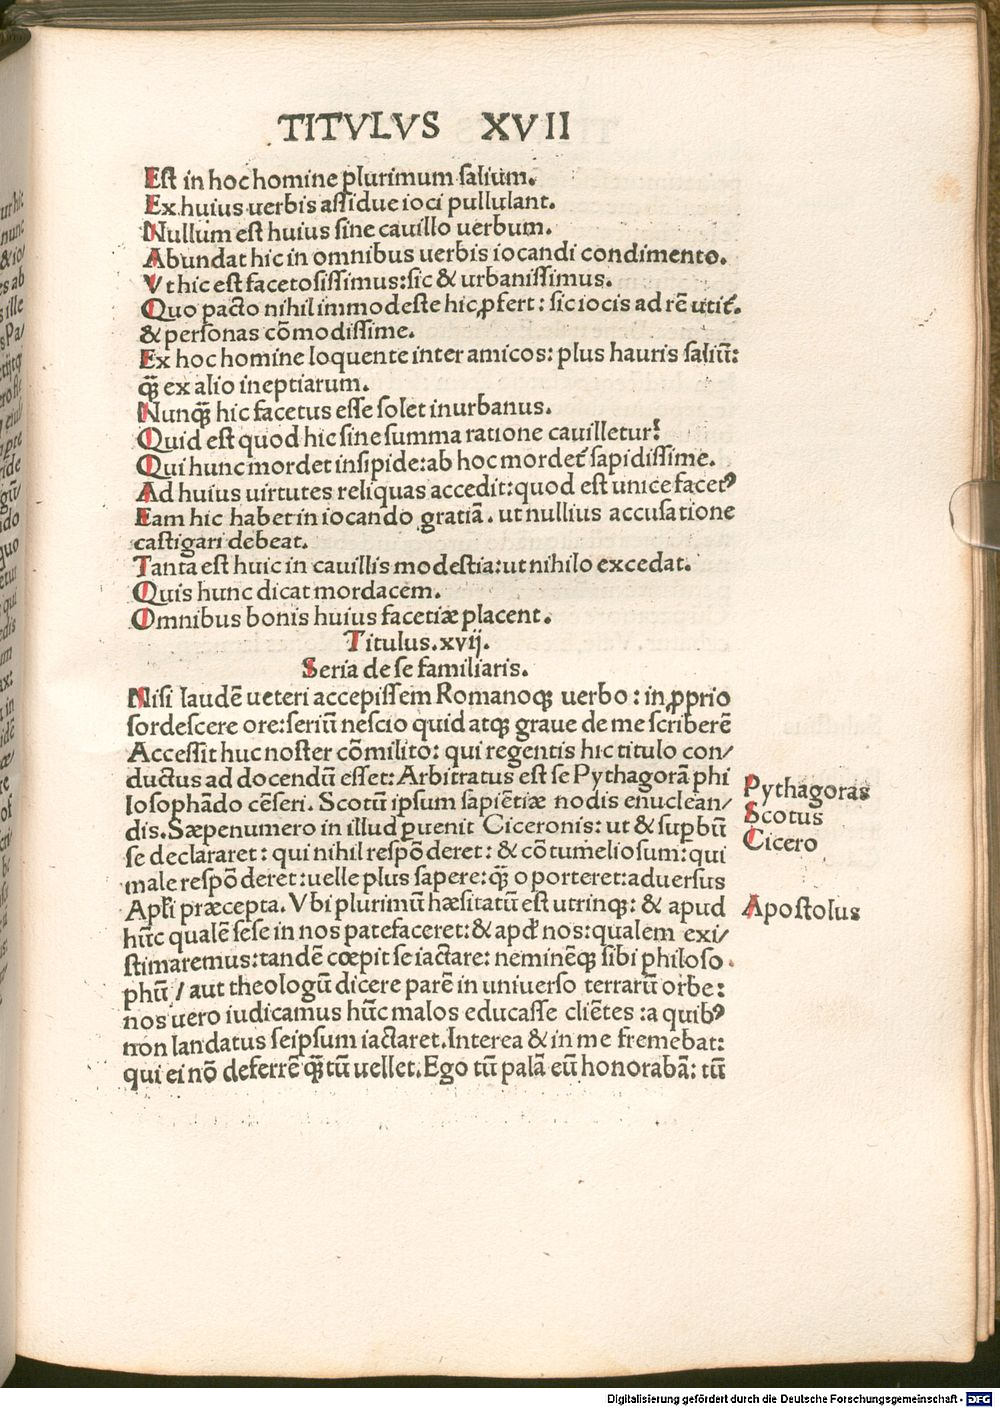 TITVLVS XVII
Est in hoc homine plurimum salium.
Ex huius uerbis assidue ioci pullulant.
Nullum est huius sine cauillo uerbum.
Abundat hic in omnibus uerbis iocandi condimento.
Vt hic est facetosissimus: sic & urbanissimus.
Quo pacto nihil immodeste hic ꝓfert: sic iocis ad rē utit᷑.
& personas cōmodissime.
Ex hoc homine loquente inter amicos: plus hauris saliū:
q̄ꝫ ex alio ineptiarum.
Nunq̄ꝫ hic facetus esse solet inurbanus.
Quid est quod hic sine summa ratione cauilletur?
Qui hunc mordet insipide: ab hoc mordet᷑ sapidissime.
Ad huius uirtutes reliquas accedit: quod est unice facetꝰ
Eam hic habet in iocando gratiā. ut nullius accusatione
castigari debeat.
Tanta est huic in cauillis modestia: ut nihilo excedat.
Quis hunc dicat mordacem.
Omnibus bonis huius facetiæ placent.
Titulus.xvij.
Seria de se familiaris.
Nisi laudē ueteri accepissem Romanoqꝫ uerbo: in ꝓprio
sordescere ore: seriū nescio quid atqꝫ graue de me scriberē
Accessit huc noster cōmilito: qui regentis hic titulo con/
ductus ad docendū esset: Arbitratus est se Pythagorā phi
losophādo cēseri. Scotū ipsum sapiētiæ nodis enuclean/
dis. Sæpenumero in illud ꝑuenit Ciceronis: ut & supbū
se declararet: qui nihil respōderet: & cōtumeliosum: qui
male respōderet: uelle plus sapere: q̄ꝫ oporteret: aduersus
Apl̄i præcepta. Vbi plurimū hæsitatū est utrinqꝫ: & apud
hūc qualē sese in nos patefaceret: & apd̄ nos: qualem exi/
stimaremus: tandē cœpit se iactare: neminēqꝫ sibi philoso
phū / aut theologū dicere parē in uniuerso terrarū orbe:
nos uero iudicamus hūc malos educasse cliētes: a quibꝰ
non landatus seipsum iactaret. Interea & in me fremebat:
qui ei nō deferrē q̄ꝫtū uellet. Ego tū palā eū honorabā: tū
Pythagoras
Scotus
Cicero
Apostolus
Digitalisierung gefördert durch die Deutsche Forschungsgemeinschaft - DFG